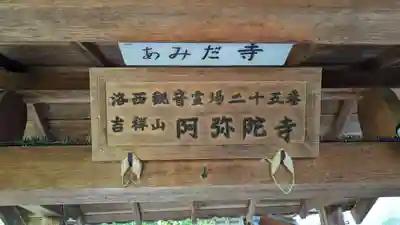 あみだ寺
洛西観音霊場二十五番
吉祥山 阿弥陀寺